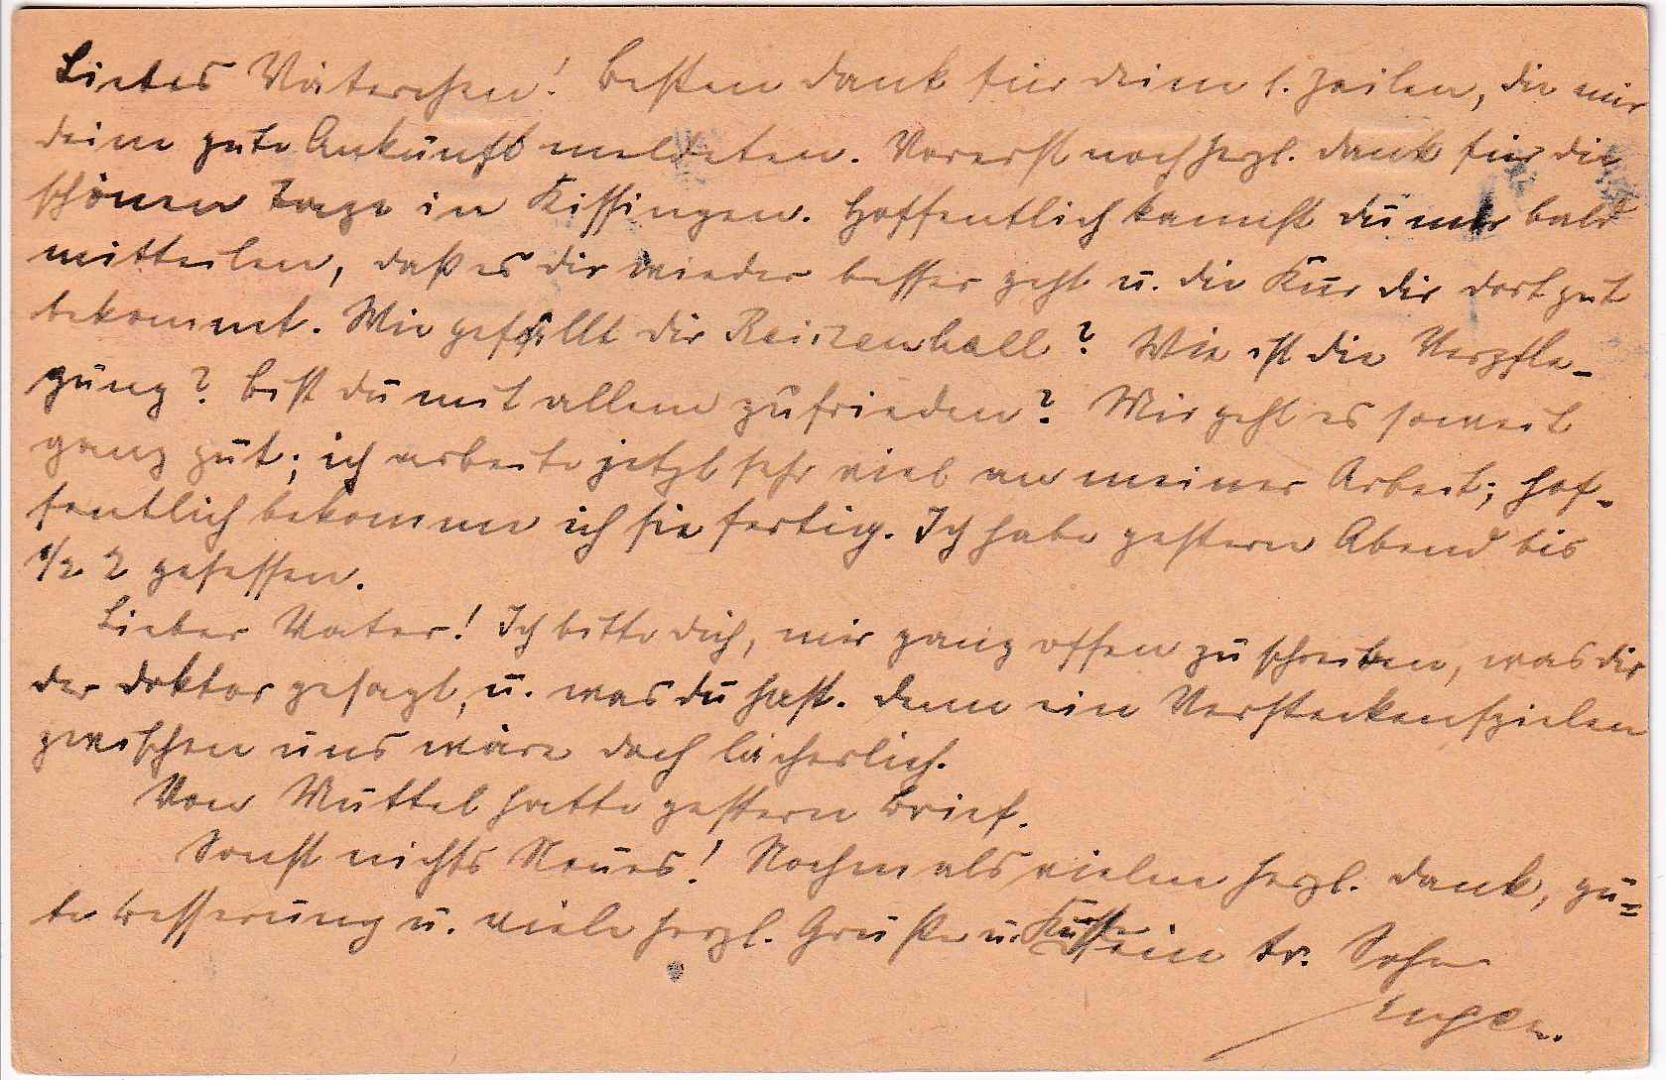 Liebes Väterchen! Besten Dank für deine l. Zeilen, die mir
deine gute Ankunft meldeten. Vorerst noch herzl. Dank für die
schönen Tage in Kissingen. Hoffentlich kannst du mir bald
mitteilen, daß es dir wieder besser geht u. die Kur dir dort gut
bekommt. Wie gefällt dir Reichenhall? Wie ist die Verpfle-
gung? Bist du mit allem zufrieden? Mir geht es soweit
ganz gut; ich arbeite jetzt sehr viel an meiner Arbeit; hof-
fentlich bekomme ich sie fertig. Ich habe gestern Abend bis
1/2 2 gesessen.
Lieber Vater! Ich bitte dich, mir ganz offen zu schreiben, was dir
der Doktor gesagt, u. was du hast. Denn ein Versteckenspielen
zwischen uns wäre doch lächerlich.
Von Muttel hatte gestern Brief.
Sonst nichts Neues! Nochmals vielen herzl. Dank, gu=
te Besserung u. viele herzl. Grüße u. Küsse dein tr. Sohn